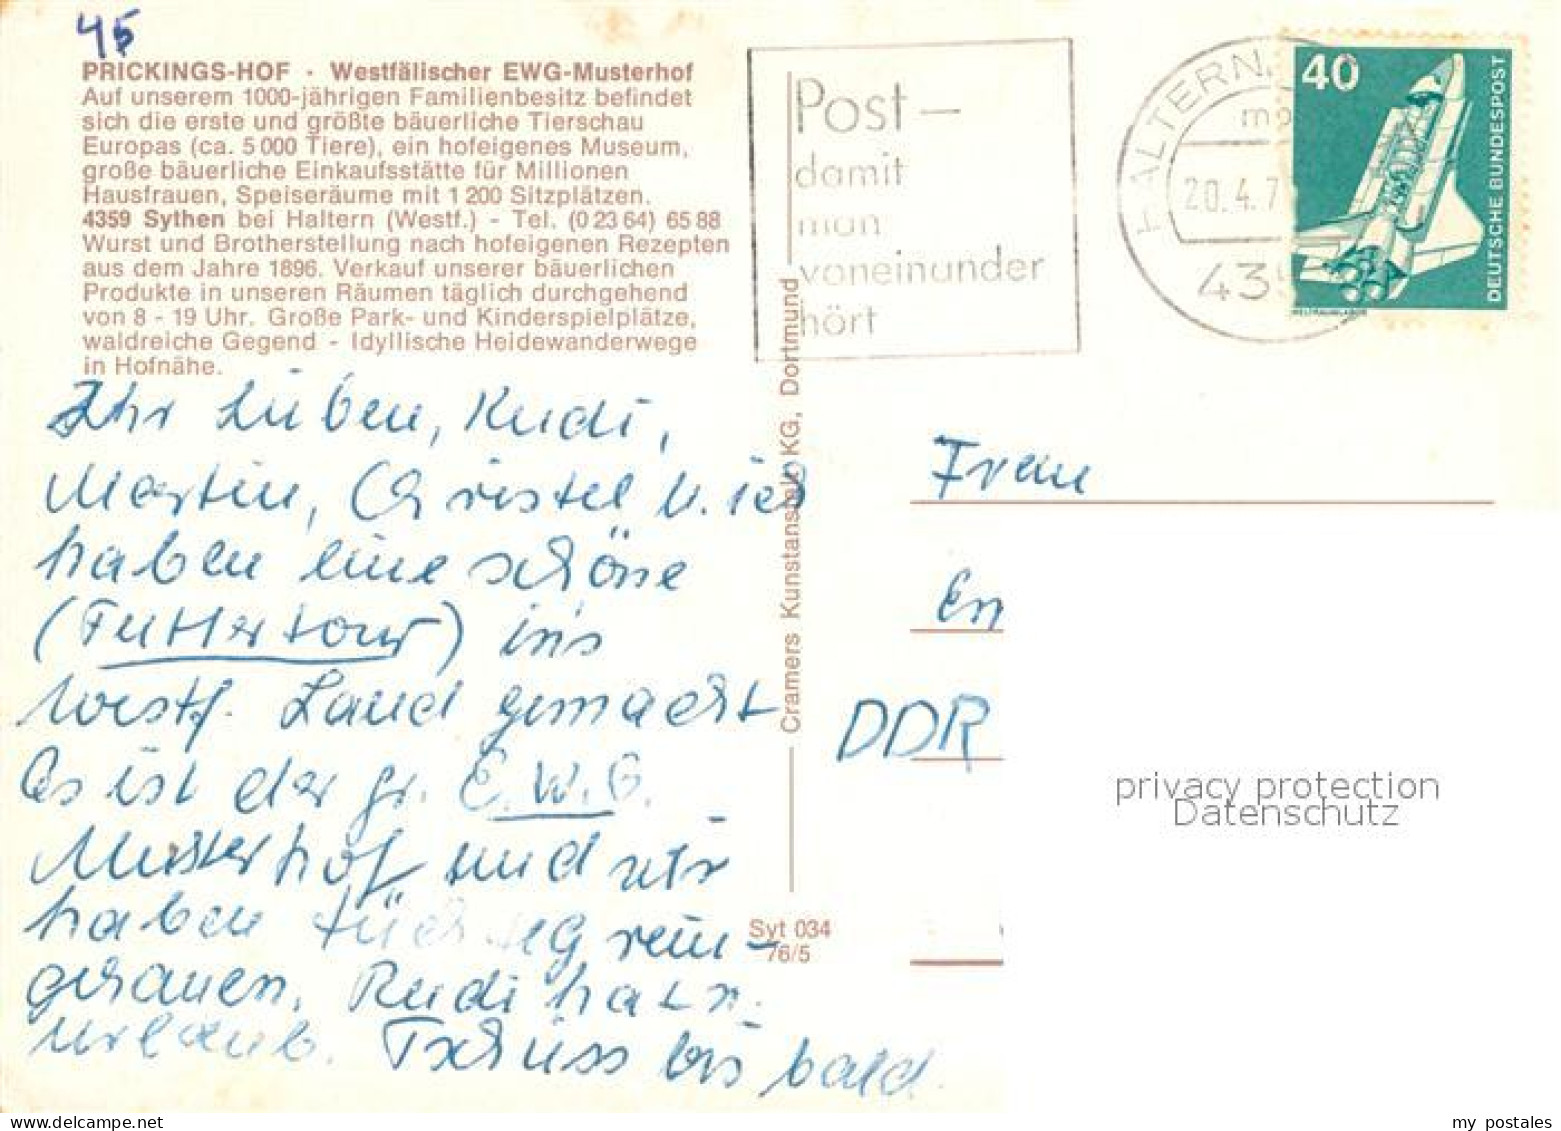 45
PRICKINGS-HOF · Westfälischer EWG-Musterhof
Auf unserem 1000-jährigen Familienbesitz befindet
sich die erste und größte bäuerliche Tierschau
Europas (ca. 5 000 Tiere), ein hofeigenes Museum,
große bäuerliche Einkaufsstätte für Millionen
Hausfrauen, Speiseräume mit 1 200 Sitzplätzen.
4359 Sythen bei Haltern (Westf.) - Tel. (0 23 64) 65 88
Wurst und Brotherstellung nach hofeigenen Rezepten
aus dem Jahre 1896. Verkauf unserer bäuerlichen
Produkte in unseren Räumen täglich durchgehend
von 8 - 19 Uhr. Große Park- und Kinderspielplätze,
waldreiche Gegend - Idyllische Heidewanderwege
in Hofnähe.
Ihr Lieben, Rudi,
Martin, Christel u. ich
haben eine schöne
(Futtertour) ins
westf. Land gemacht
Es ist der gr. E.W.G.
Musterhof und wir
haben tüchtig rein-
gehauen. Rudi hat
Urlaub. Tschüss bis bald.
Cramers Kunstanstalt KG, Dortmund
Syt 034
76/5
Post -
damit
man
voneinander
hört
HALTERN,
20.4.7
435
40
DEUTSCHE BUNDESPOST
WELTRAUMLABOR
Frau
En
DDR
privacy protection
Datenschutz
my postales